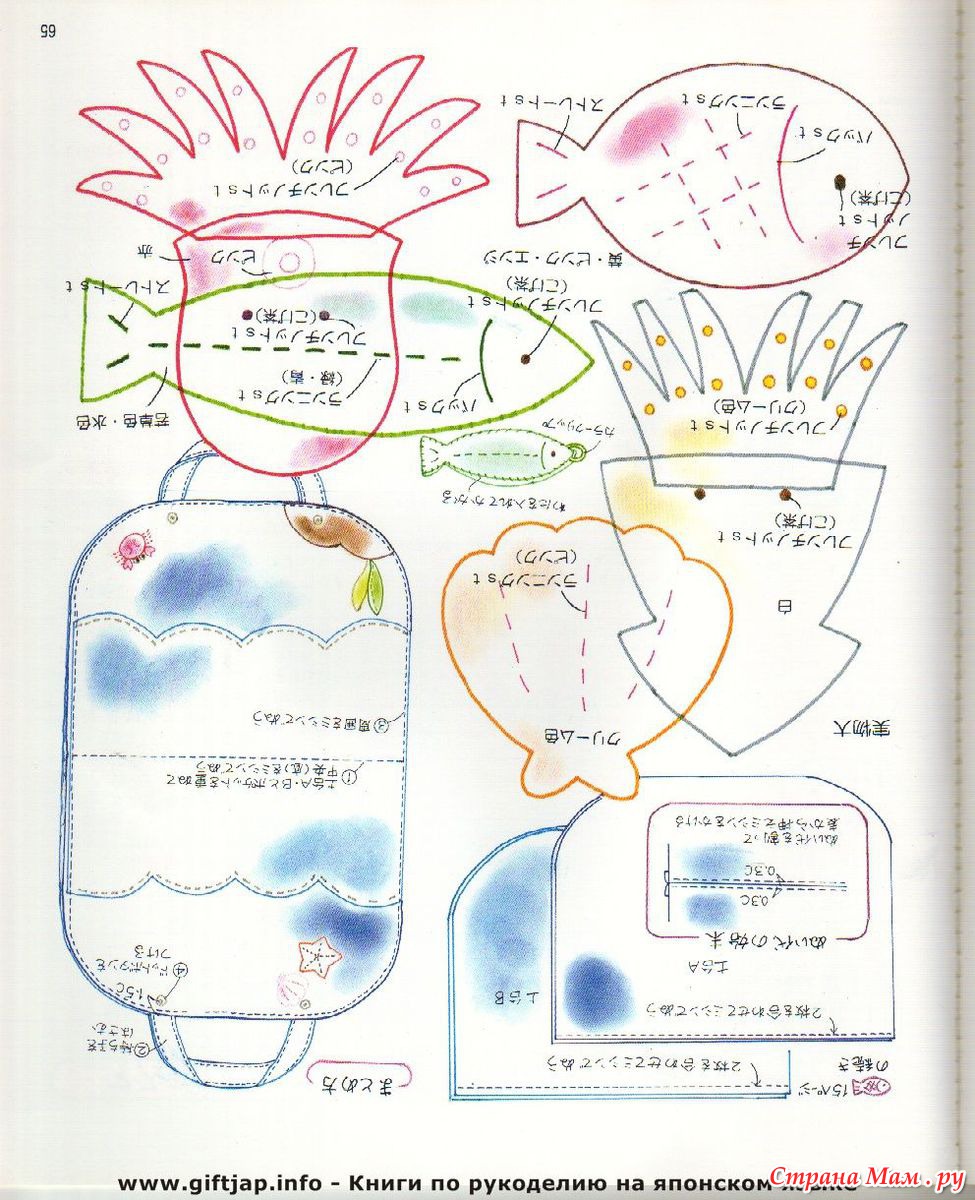 15ページ
の続き
2枚を合わせてミシンでぬう
土台B
2枚を合わせてミシンでぬう
土台A
ぬい代の始末
0.3C
0.3C
ぬい代を割って
表から押てミシンをかける
まとめ方
②持ち手を
はさむ
1.5C
④ドットボタンを
つける
①土台A・Bとポケットを重ねて
中央(底)をミシンでぬう
③周囲をミシンでぬう
実物大
クリーム色
ランニングst
(ピンク)
白
フレンチノットst
(こげ茶)
フレンチノットst
(クリーム色)
わたを入れてかがる
カラークリップ
若草色・水色
バックst
ランニングst
(緑・青)
フレンチノットst
(こげ茶)
フレンチノットst
(こげ茶)
ストレートst
黄・ピンク・エンジ
ピンク
赤
フレンチノットst
(ピンク)
フレンチ
ノットst
(こげ茶)
バックst
ランニングst
ストレートst
65
www.giftjap.info - Книги по рукоделию на японском
Страна Мам.ру